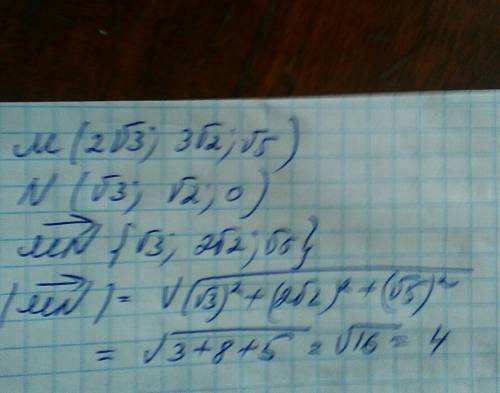 M (2√3; 3√2; √5)
N (√3; √2; 0)
MN⃗ {√3; 2√2; √5}
|MN⃗| = √(√3)² + (2√2)² + (√5)²
= √3+8+5 = √16 = 4